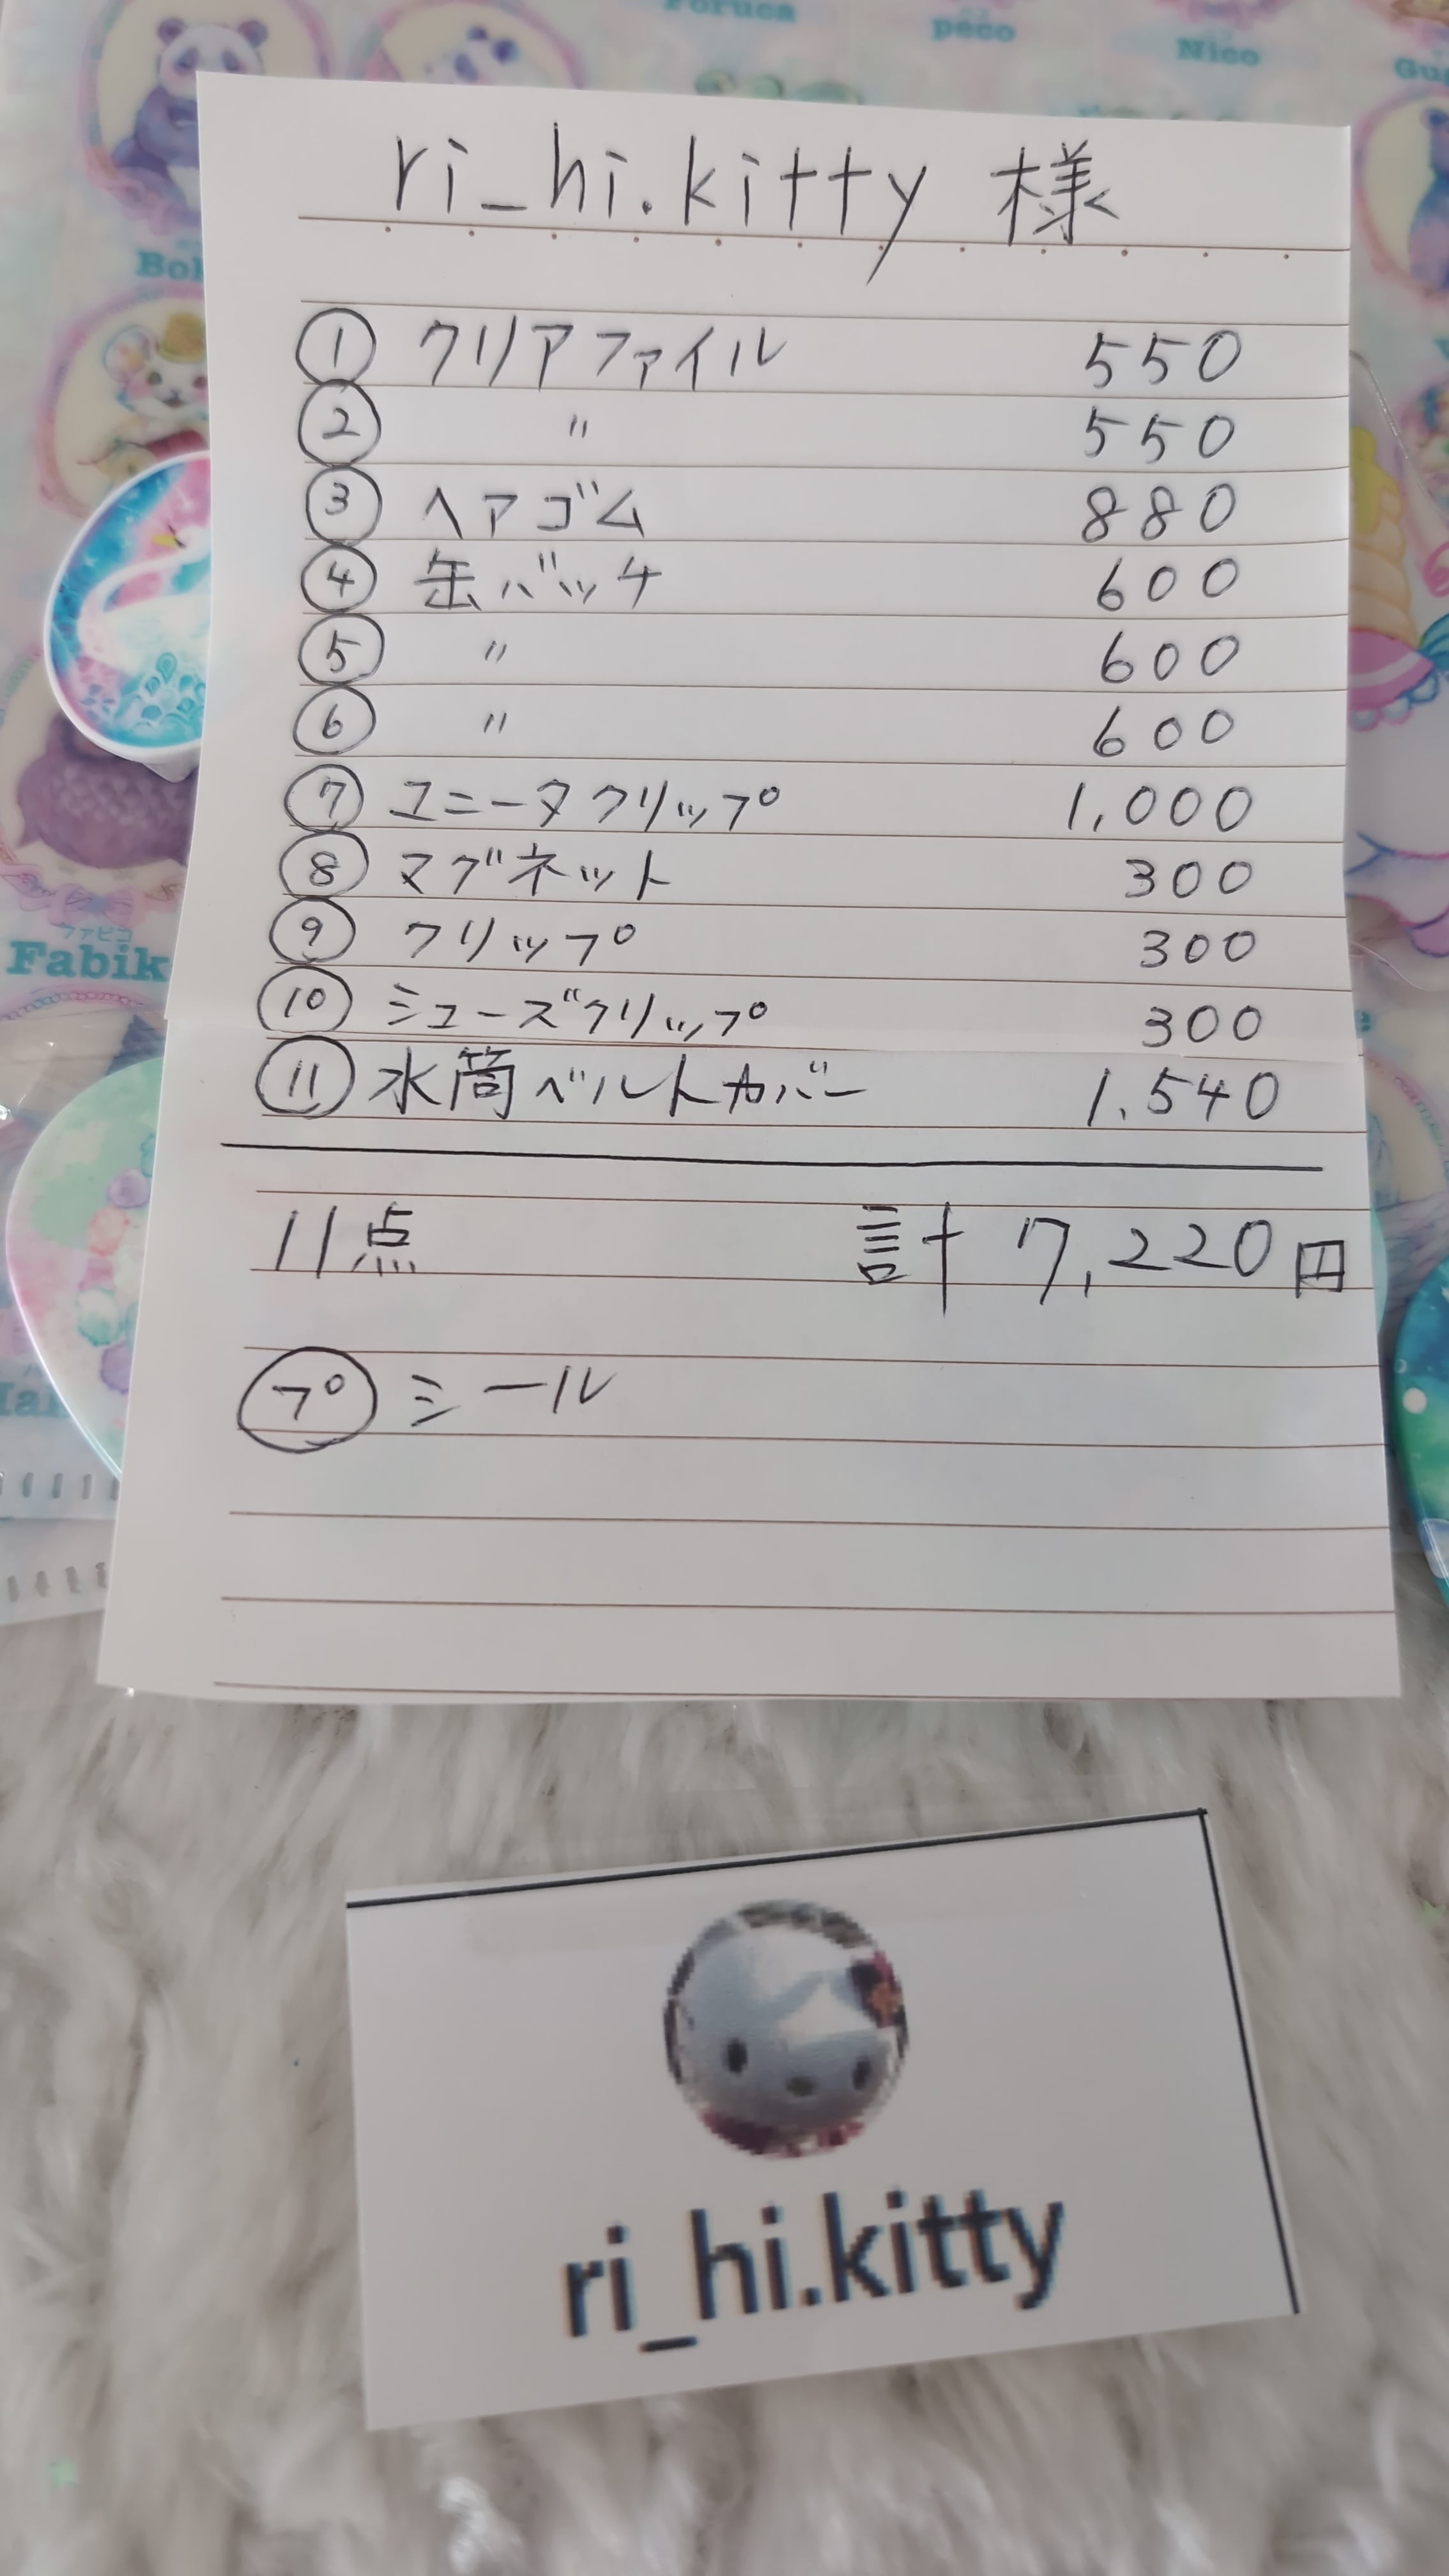 Foruca
peco
Nico
Gu
Bo
ri_hi.kitty 様
① クリアファイル 550
② 〃 550
③ ヘアゴム 880
④ 缶バッチ 600
⑤ 〃 600
⑥ 〃 600
⑦ ユニータクリップ 1,000
⑧ マグネット 300
⑨ クリップ 300
⑩ シューズクリップ 300
⑪ 水筒ベルトカバー 1.540
11点 計 7,220円
プ シール
ファビコ
Fabik
ri_hi.kitty